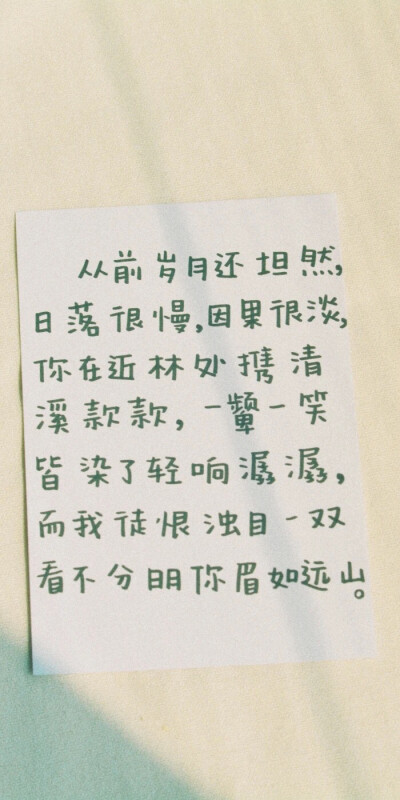 从前岁月还坦然,
日落很慢,因果很淡,
你在近林处携清
溪款款,一颦一笑
皆染了轻响潺潺,
而我徒恨浊目一双
看不分明你眉如远山。